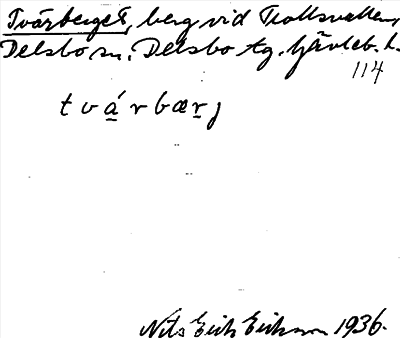 Tvärberget, berg vid Trollsvallen,
Delsbo sn. Delsbo tg. Gävleb. l.
114
tvárbærj
Nils Erik Erikson 1936.